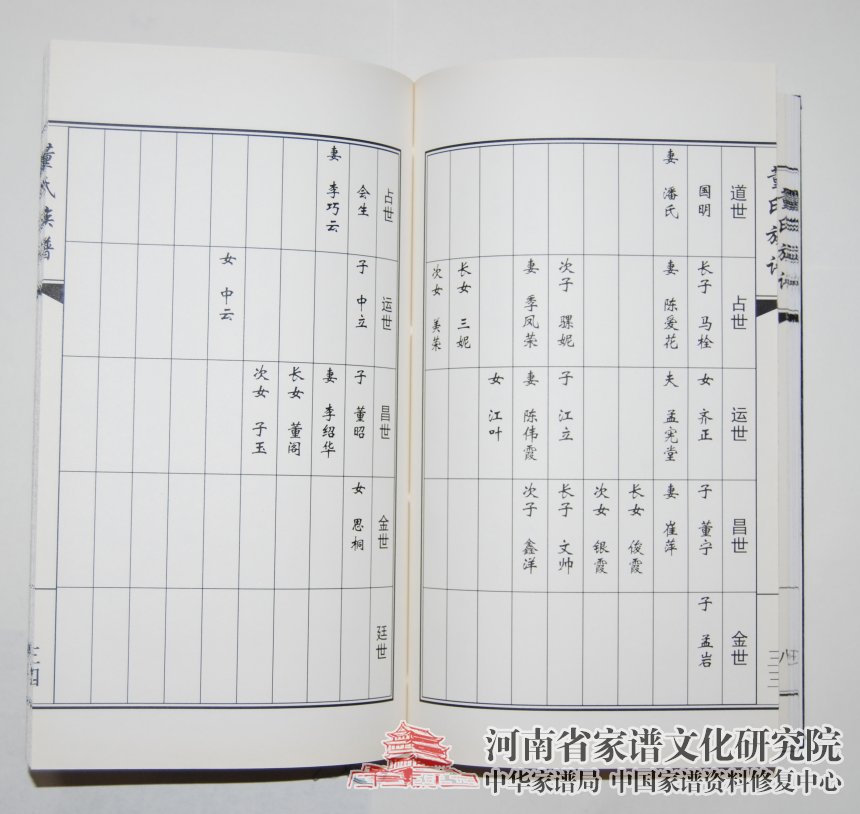 董氏族谱
道世
国明
妻 潘氏
占世
长子 马栓
妻 陈爱花
次子 骡妮
妻 季凤荣
长女 三妮
次女 美荣
运世
女 齐正
夫 孟宪堂
子 江立
妻 陈伟霞
女 江叶
昌世
子 董宁
妻 崔萍
长女 俊霞
次女 银霞
长子 文帅
次子 鑫洋
金世
子 孟岩
三三
占世
会生
妻 李巧云
运世
子 中立
女 中云
昌世
子 董昭
妻 李绍华
长女 董阁
次女 子玉
金世
女 思桐
廷世
董氏族谱
三四
河南省家谱文化研究院
中华家谱局 中国家谱资料修复中心